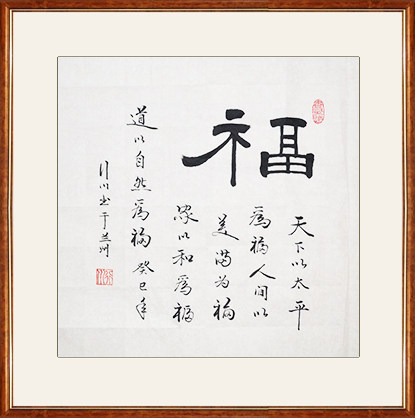 福
天下以太平
為福人間以
美满为福
家以和為福
道以自然為福 癸巳年
川书于兰州